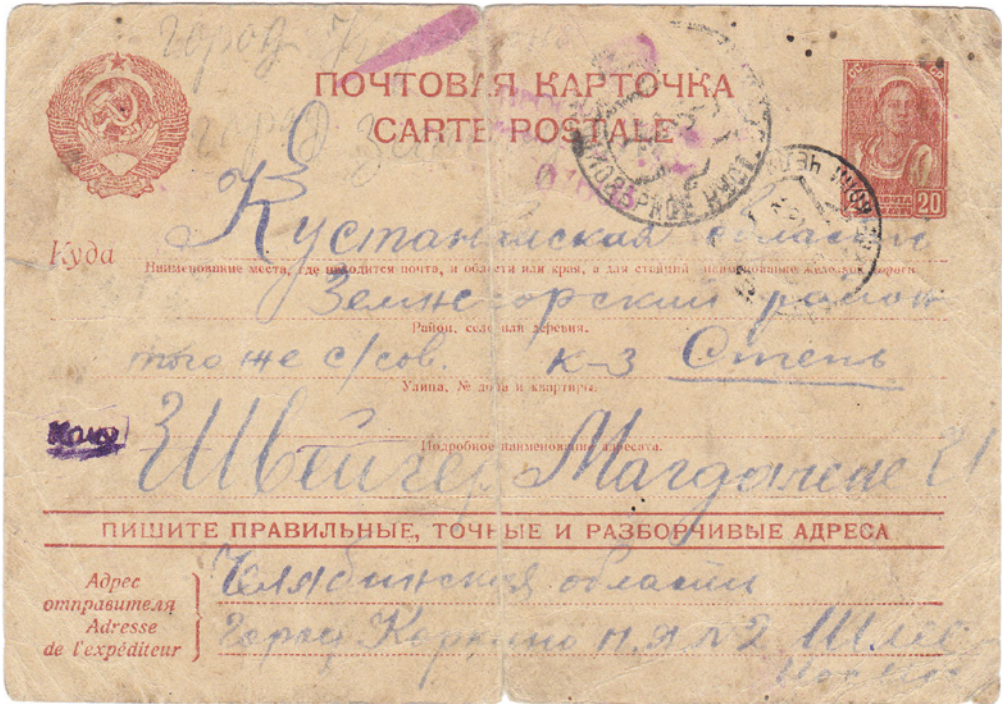 город
ПОЧТОВАЯ КАРТОЧКА
CARTE POSTALE
город
20
Куда
Кустанайская область
Наименование места, где находится почта, и области или края, а для станций наименование железной дороги.
район
Район, село или деревня.
того же с/сов. к-з Степь
Улица, № дома и квартиры.
Кому
Швейгер Магдалене
Подробное наименование адресата.
ПИШИТЕ ПРАВИЛЬНЫЕ, ТОЧНЫЕ И РАЗБОРЧИВЫЕ АДРЕСА
Адрес отправителя
Adresse de l'expéditeur
Челябинская область
город Коркино п.ял 2